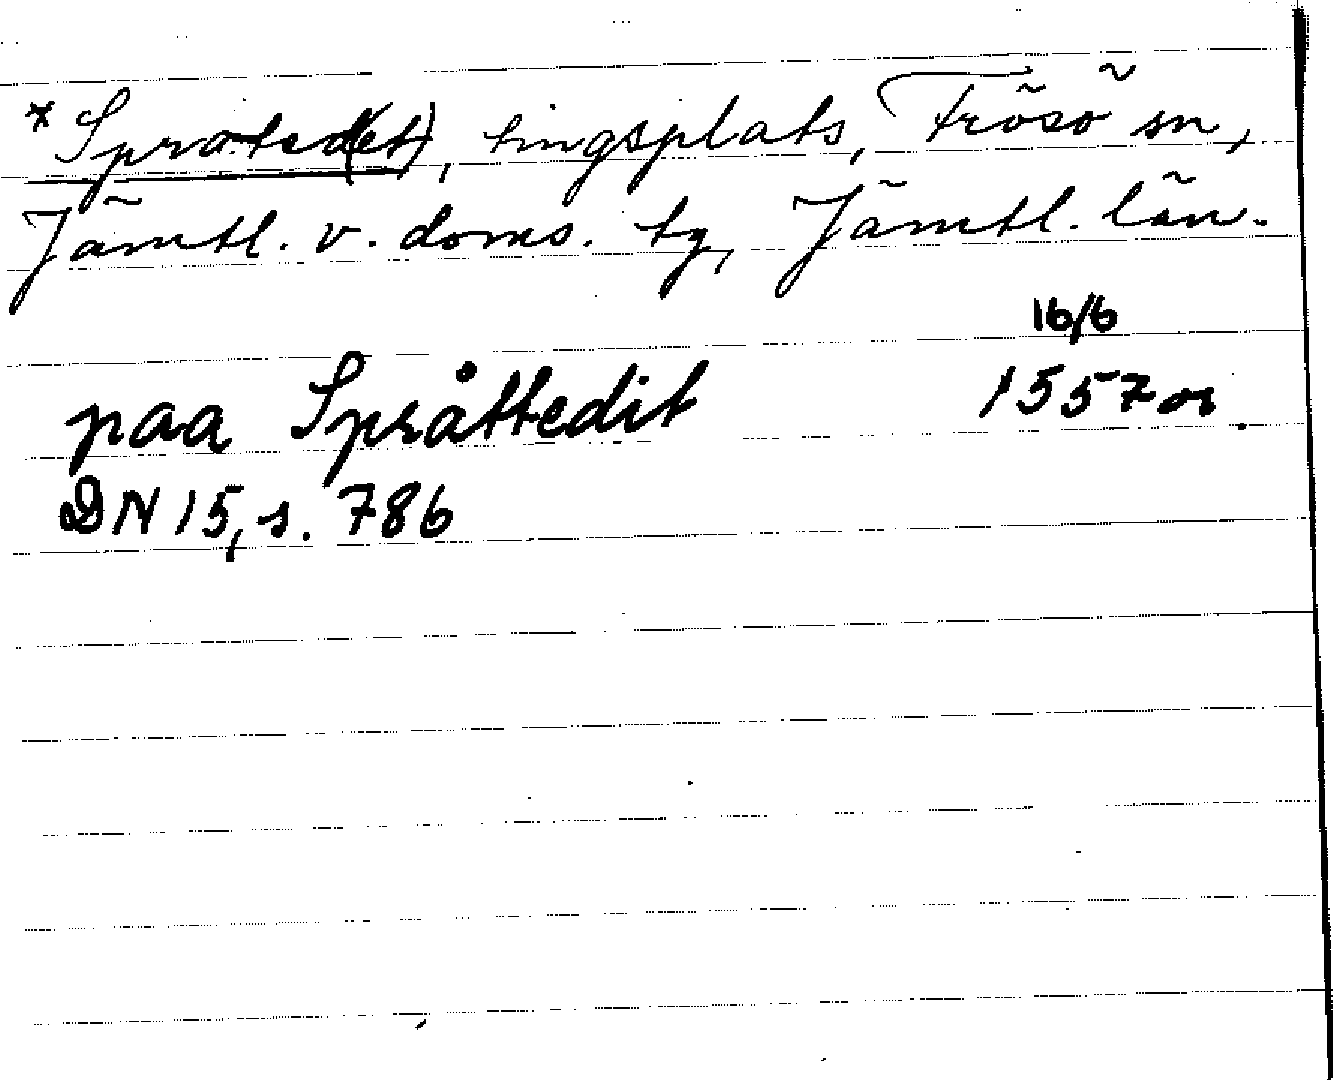 * Sproteed(et), tingsplats, Frösö sn,
Jämtl. v. doms. tg, Jämtl. län.
16/6
paa Språttedit 1557 or.
DN 15, s. 786